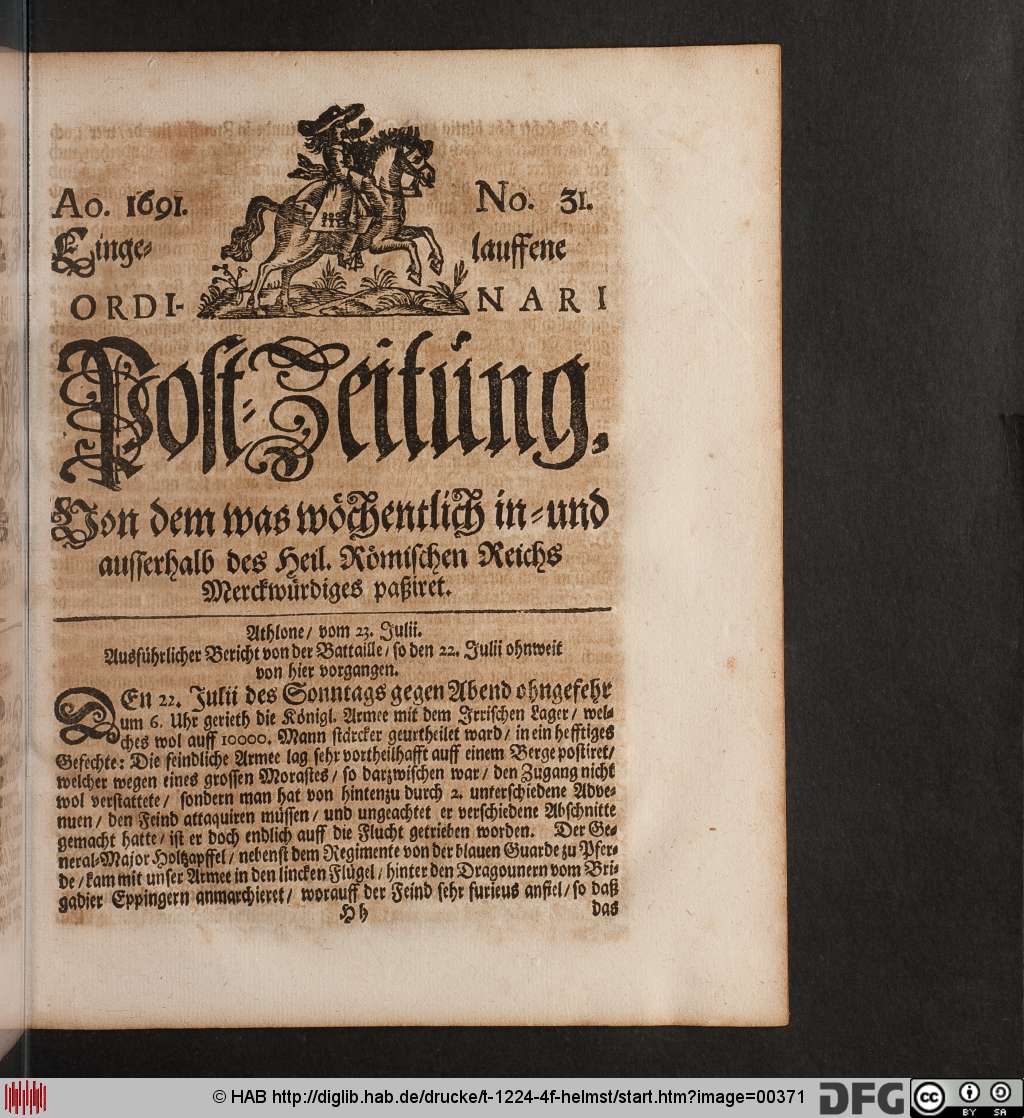 Ao. 1691. No. 31.
Einge- lauffene
ORDI- NARI
Post-Zeitung,
Von dem was wöchentlich in- und
ausserhalb des Heil. Römischen Reichs
Merckwürdiges paßiret.
Athlone/ vom 23. Julii.
Ausführlicher Bericht von der Battaille/ so den 22. Julii ohnweit
von hier vorgangen.
DEn 22. Julii des Sonntags gegen Abend ohngefehr
um 6. Uhr gerieth die Königl. Armee mit dem Irrischen Lager/ wel-
ches wol auff 10000. Mann stärcker geurtheilet ward/ in ein hefftiges
Gefechte: Die feindliche Armee lag sehr vortheilhafft auff einem Berge postiret/
welcher wegen eines grossen Morastes/ so darzwischen war/ den Zugang nicht
wol verstattete/ sondern man hat von hintenzu durch 2. unterschiedene Adve-
nuen/ den Feind attaquiren müssen/ und ungeachtet er verschiedene Abschnitte
gemacht hatte/ ist er doch endlich auff die Flucht getrieben worden. Der Ge-
neral-Major Holtzapffel/ nebenst dem Regimente von der blauen Guarde zu Pfer-
de/ kam mit unser Armee in den lincken Flügel/ hinter den Dragounern vom Bri-
gadier Eppingern anmarchieret/ worauff der Feind sehr furieus anfiel/ so daß
Hh das
© HAB http://diglib.hab.de/drucke/t-1224-4f-helmst/start.htm?image=00371
DFG
cc BY SA